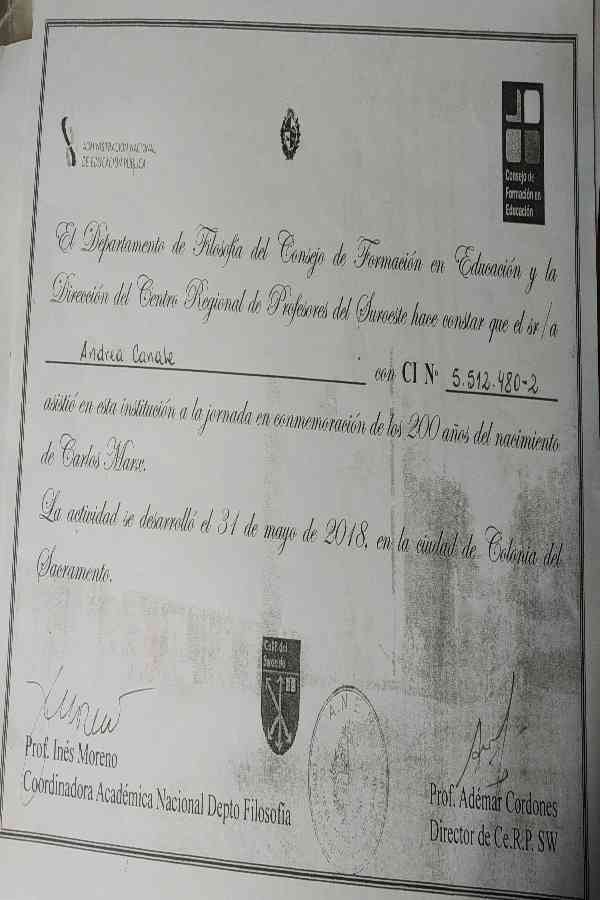 ADMINISTRACIÓN NACIONAL
DE EDUCACIÓN PÚBLICA
Consejo de
Formación en
Educación
El Departamento de Filosofía del Consejo de Formación en Educación y la
Dirección del Centro Regional de Profesores del Suroeste hace constar que el sr/a
Andrea Canale con CI Nº 5.512.480-2
asistió en esta institución a la jornada en conmemoración de los 200 años del nacimiento
de Carlos Marx.
La actividad se desarrolló el 31 de mayo de 2018, en la ciudad de Colonia del
Sacramento.
CeRP del
Suroeste
A.N.E.
Prof. Inés Moreno
Coordinadora Académica Nacional Depto Filosofía
Prof. Adémar Cordones
Director de Ce.R.P. SW